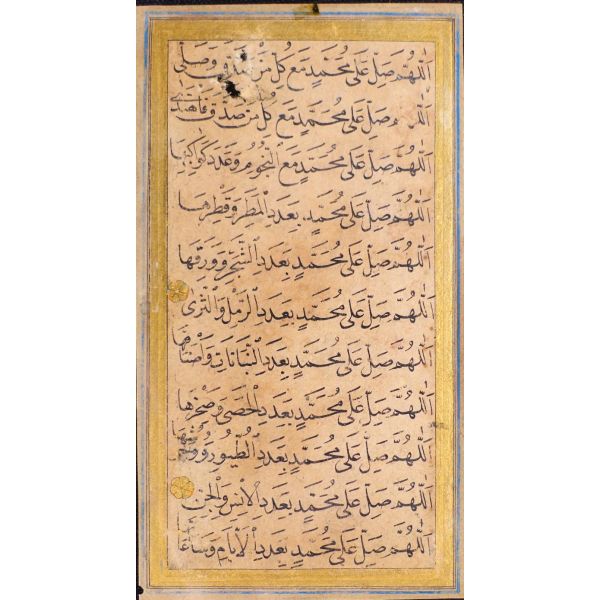 اَللّٰهُمَّ صَلِّ عَلٰى مُحَمَّدٍ مَعَ كُلِّ مَنْ وَصَلّٰى
اَللّٰهُمَّ صَلِّ عَلٰى مُحَمَّدٍ مَعَ كُلِّ مَنْ صَدَّقَ فَاهْتَدٰى
اَللّٰهُمَّ صَلِّ عَلٰى مُحَمَّدٍ مَعَ النُّجُومِ وَعَدَدِ كَوَاكِبِهَا
اَللّٰهُمَّ صَلِّ عَلٰى مُحَمَّدٍ بِعَدَدِ الْمَطَرِ وَقَطْرِهَا
اَللّٰهُمَّ صَلِّ عَلٰى مُحَمَّدٍ بِعَدَدِ الشَّجَرِ وَوَرَقِهَا
اَللّٰهُمَّ صَلِّ عَلٰى مُحَمَّدٍ بِعَدَدِ الرَّمْلِ وَالثَّرٰى
اَللّٰهُمَّ صَلِّ عَلٰى مُحَمَّدٍ بِعَدَدِ النَّبَاتَاتِ
اَللّٰهُمَّ صَلِّ عَلٰى مُحَمَّدٍ بِعَدَدِ الْحَصٰى وَصَخْرِهَا
اَللّٰهُمَّ صَلِّ عَلٰى مُحَمَّدٍ بِعَدَدِ الطُّيُورِ
اَللّٰهُمَّ صَلِّ عَلٰى مُحَمَّدٍ بِعَدَدِ الْاِنْسِ وَالْجِنِّ
اَللّٰهُمَّ صَلِّ عَلٰى مُحَمَّدٍ بِعَدَدِ الْاَيَّامِ